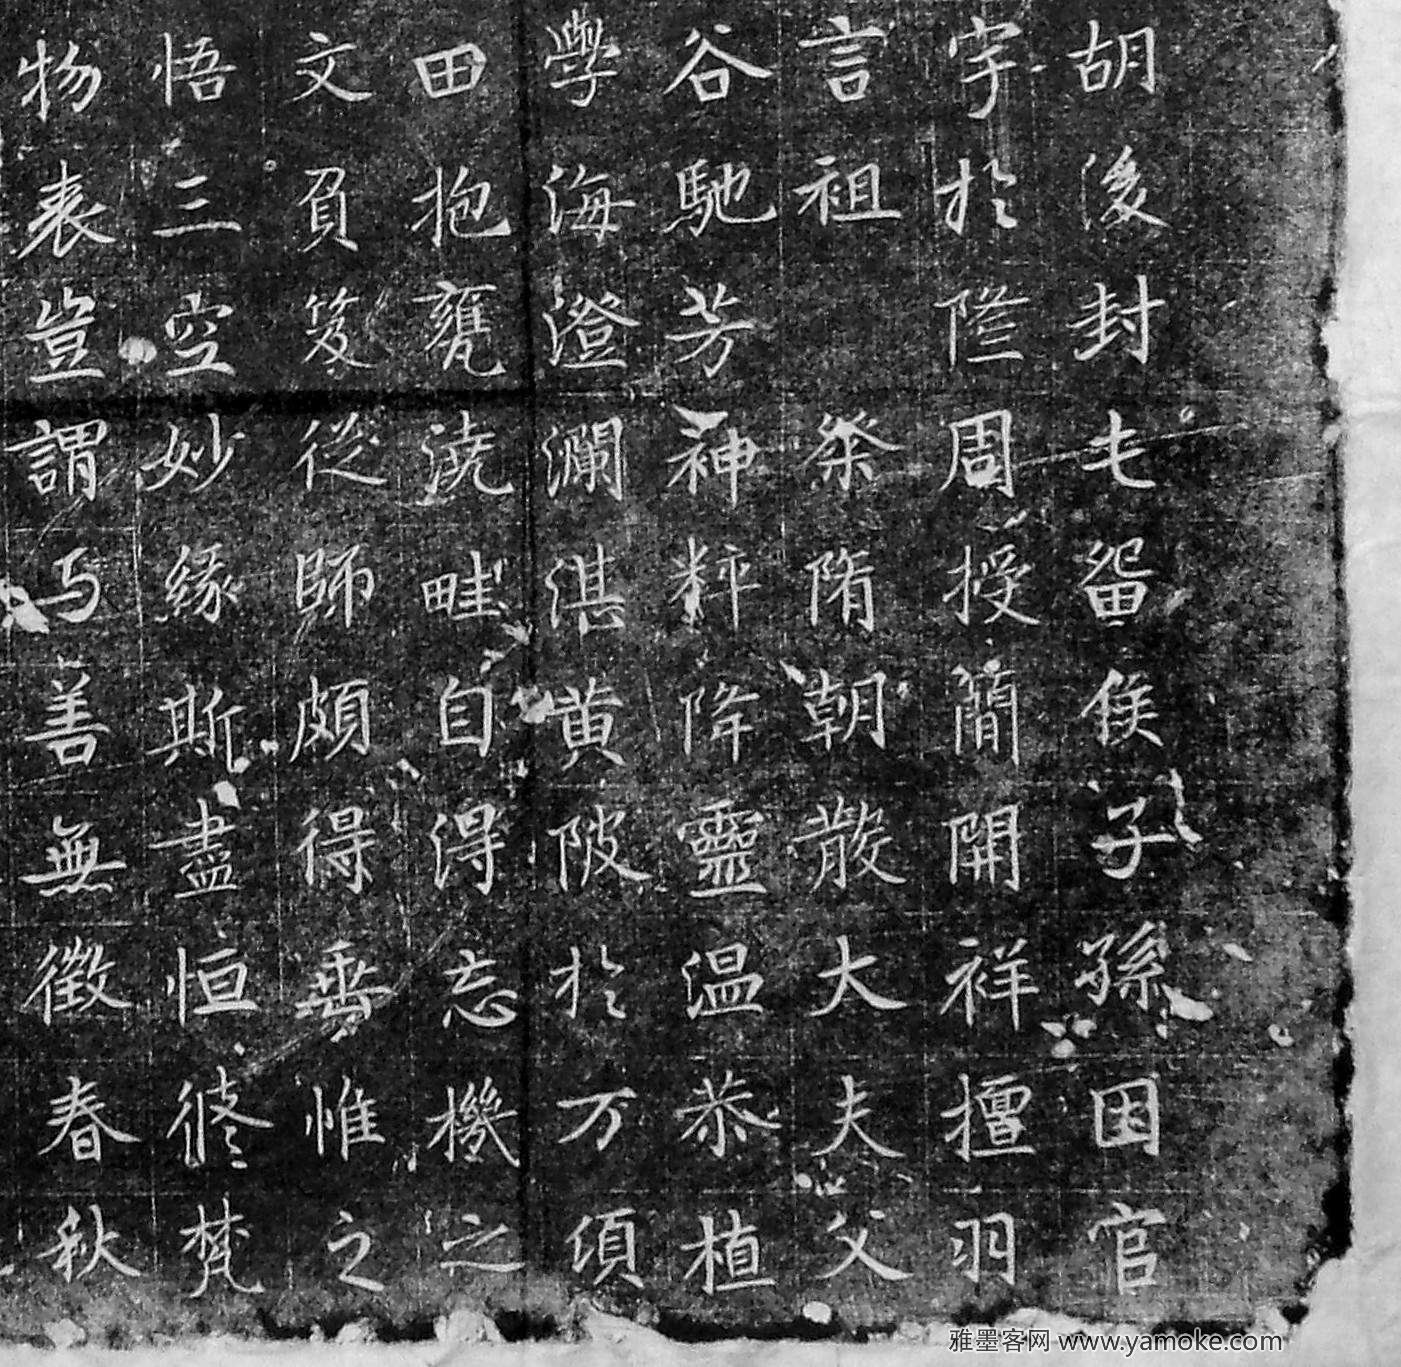 胡後封七留侯子孫因官
宇於隆周授簡開祥擅羽
言祖　粲隋朝散大夫父
谷馳芳神粹降靈温恭植
學海澄瀾湛黄陂於万頃
田抱甕澆畦自得忘機之
文負笈從師頗得垂惟之
悟三空妙緣斯盡恒脩梵
物表豈謂与善無徵春秋
雅墨客网 www.yamoke.com